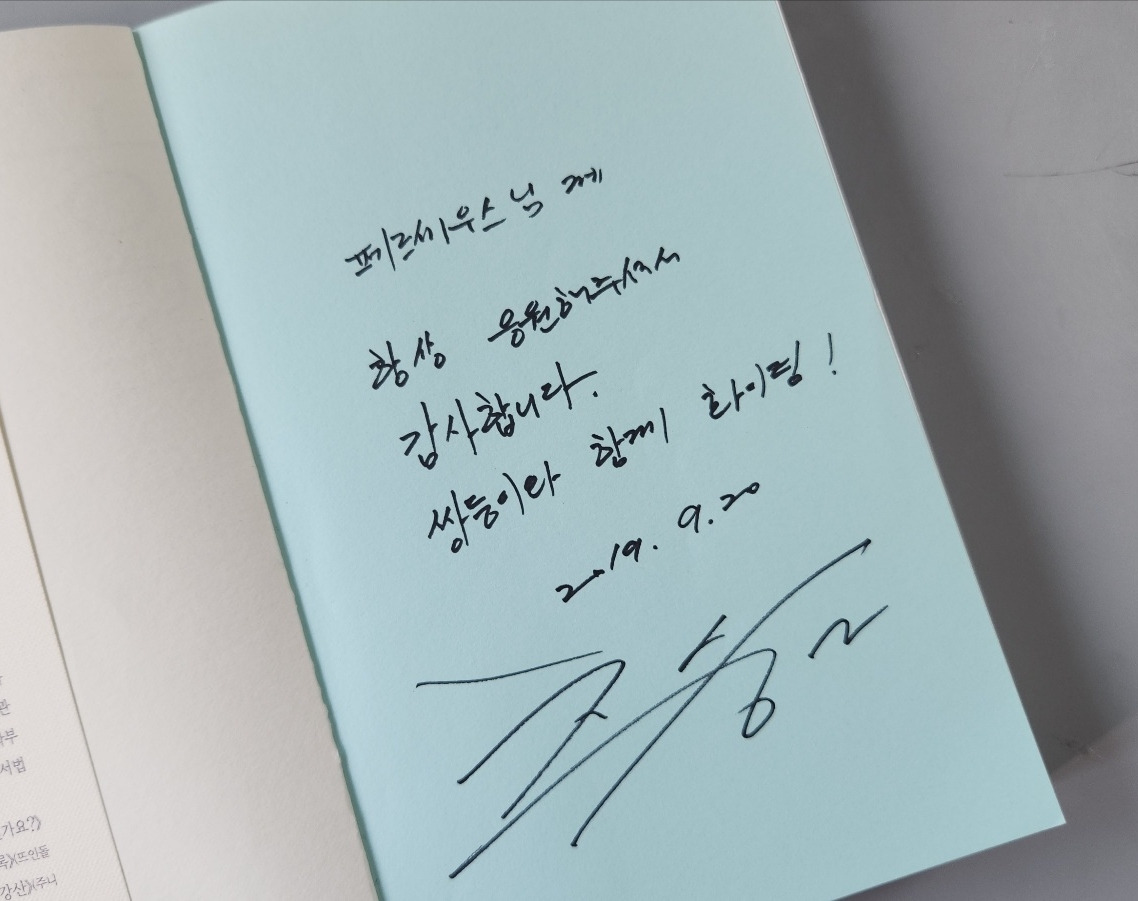 페르세우스님께
항상 응원해주셔서
감사합니다.
쌍둥이와 함께 화이팅!
2019. 9. 20
관
부
서법
가요?》
록》(뜨인돌
강산》(주니